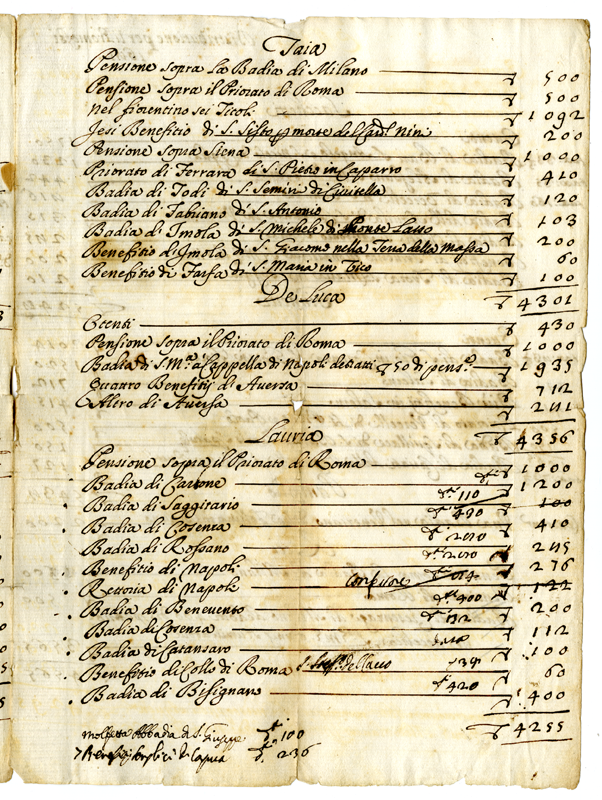 Taia
Pensione sopra la Badia di Milano 500
Pensione sopra il Priorato di Roma 500
Nel fiorentino sei Titoli 1092
Jesi Benefitio di S. Sisto p morte del Card. Nini 200
Pensione sopra Siena 1000
Priorato di Ferrara di S. Pietro in Casparro 410
Badia di Todi di S. Gemini di Civitella 120
Badia di Fabiano di S. Antonio 103
Badia d'Imola di S. Michele di Monte Lasso 200
Benefitio d'Imola di S. Giacomo nella Terra della Massa 60
Benefitio di Farfa di S. Maria in Vico 100
4301
De Luca
Ocenti 430
Pensione sopra il Priorato di Roma 1000
Badia di S. Mª a Cappella di Napoli detratti 750 di pensᵉ 1935
Quattro Benefitij di Aversa 712
Altro di Aversa 241
4356
Lauria
Pensione sopra il Priorato di Roma 1000
Badia di Carrone 1200
Badia di Saggitario 110 100
Badia di Cosenza 490 410
Badia di Rossano 245
Benefitio di Napoli 276
Rettoria di Napoli 122
Badia di Benevento 400 200
Badia di Corenza 132 112
Badia di Catansaro 100
Benefitio di Collo di Roma S. Stefº del Cacco 60
Badia di Bisignano 420 400
4255
Molfetta Abbadia di S. 100
di Capua 236